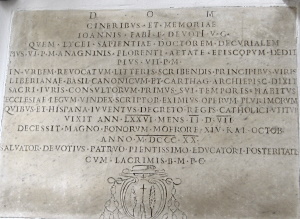 D O M
CINERIBVS ET MEMORIAE
IOANNIS FABI F DEVOTI V C
QVEM LYCEI SAPIENTIAE DOCTOREM DECVRIALEM
PIVS VI P M ANAGNINIS FLORENTI AETATE EPISCOPVM DEDIT
PIVS VII P M
IN VRBEM REVOCATVM LITTERIS SCRIBENDIS PRINCIPIBVS VIRIS
LIBERIANAE BASIL CANONICVM ET CARTHAG ARCHIEPISC DIXIT
SACRI IVRIS CONSVLTORVM PRIMVS SVI TEMPORIS HABITVS
ECCLESIAE LEGVM VINDEX SCRIPTOR EXIMIVS OPERVM PLVRIMORVM
QVIBVS ET HISPANA IVVENTVS DECRETO REGIS CATHOLICI VTITVR
VIXIT ANN LXXVI MENS II D VII
DECESSIT MAGNO BONORVM MOERORE XIV KAL OCTOB
ANNO M DCCC XX
SALVATOR DEVOTIVS PATRVO PIENTISSIMO EDVCATORI POSTERITATE
CVM LACRIMIS B M P C